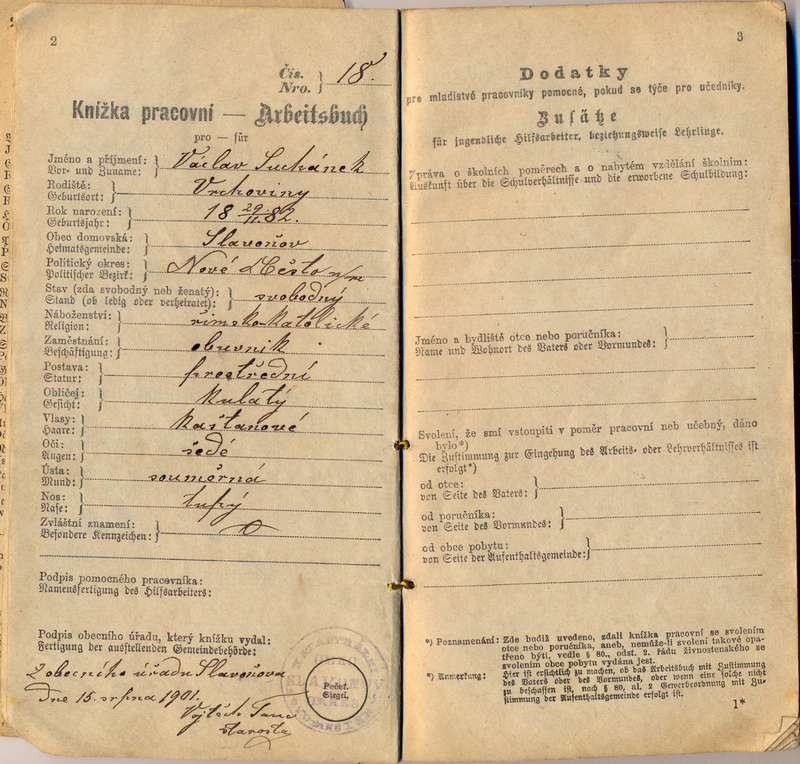 2
Čís.
Nro. } 18.
Knížka pracovní — Arbeitsbuch
pro — für
Jméno a příjmení:
Vor- und Zuname: } Václav Suchánek
Rodiště:
Geburtsort: } Vrchoviny
Rok narození:
Geburtsjahr: } 18 29/11. 82.
Obec domovská:
Heimatsgemeinde: } Slavoňov
Politický okres:
Politischer Bezirk: } Nové Město n/m
Stav (zda svobodný neb ženatý):
Stand (ob ledig oder verheiratet): } svobodný
Náboženství:
Religion: } římsko-katolické
Zaměstnání:
Beschäftigung: } obuvník
Postava:
Statur: } prostřední
Obličej:
Gesicht: } kulatý
Vlasy:
Haare: } kaštanové
Oči:
Augen: } šedé
Ústa:
Mund: } souměrná
Nos:
Nase: } tupý
Zvláštní znamení:
Besondere Kennzeichen: }
Podpis pomocného pracovníka:
Namensfertigung des Hilfsarbeiters:
Podpis obecního úřadu, který knížku vydal:
Fertigung der ausstellenden Gemeindebehörde:
Z obecního úřadu Slavoňova
Dne 15. srpna 1901.
Vojtěch
starosta
Pečeť.
Siegel.
3
Dodatky
pro mladistvé pracovníky pomocné, pokud se týče pro učedníky.
Zusätze
für jugendliche Hilfsarbeiter, beziehungsweise Lehrlinge.
Zpráva o školních poměrech a o nabytém vzdělání školním:
Auskunft über die Schulverhältnisse und die erworbene Schulbildung:
Jméno a bydliště otce nebo poručníka:
Name und Wohnort des Vaters oder Vormundes: }
Svolení, že smí vstoupiti v poměr pracovní neb učebný, dáno
bylo*)
Die Zustimmung zur Eingehung des Arbeits- oder Lehrverhältnisses ist
erfolgt*)
od otce:
von Seite des Vaters: }
od poručníka:
von Seite des Vormundes: }
od obce pobytu:
von Seite der Aufenthaltsgemeinde: }
*) Poznamenání: Zde budiž uvedeno, zdali knížka pracovní se svolením
otce nebo poručníka, aneb, nemůže-li svolení takové opa-
třeno býti, vedle § 80., odst. 2. řádu živnostenského se
svolením obce pobytu vydána jest.
*) Anmerkung: Hier ist ersichtlich zu machen, ob das Arbeitsbuch mit Zustimmung
des Vaters oder des Vormundes, oder wenn eine solche nicht
zu beschaffen ist, nach § 80, al. 2 Gewerbeordnung mit Zu-
stimmung der Aufenthaltsgemeinde erfolgt ist.
1*